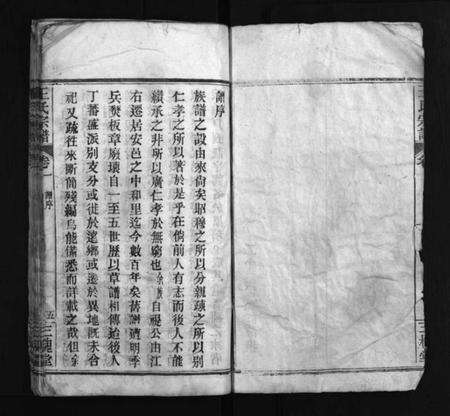 譜序
族譜之設由來尚矣昭穆之所以分親疎之所以別
仁孝之所以著於是乎在倘前人有志而後人不能
續承之非所以廣仁孝於無窮也余族自視公由江
右遷居安邑之中和里迄今數百年矣舊譜遭明季
兵燹板章廢壞自一至五世歷以草譜相傳迨後人
丁蕃盛派別支分或徙於遠鄉或遷於異地既未合
祀又疏往來斷簡殘編烏能備悉而詳載之哉但余
王氏宗譜
卷一
譜序
五
三槐堂